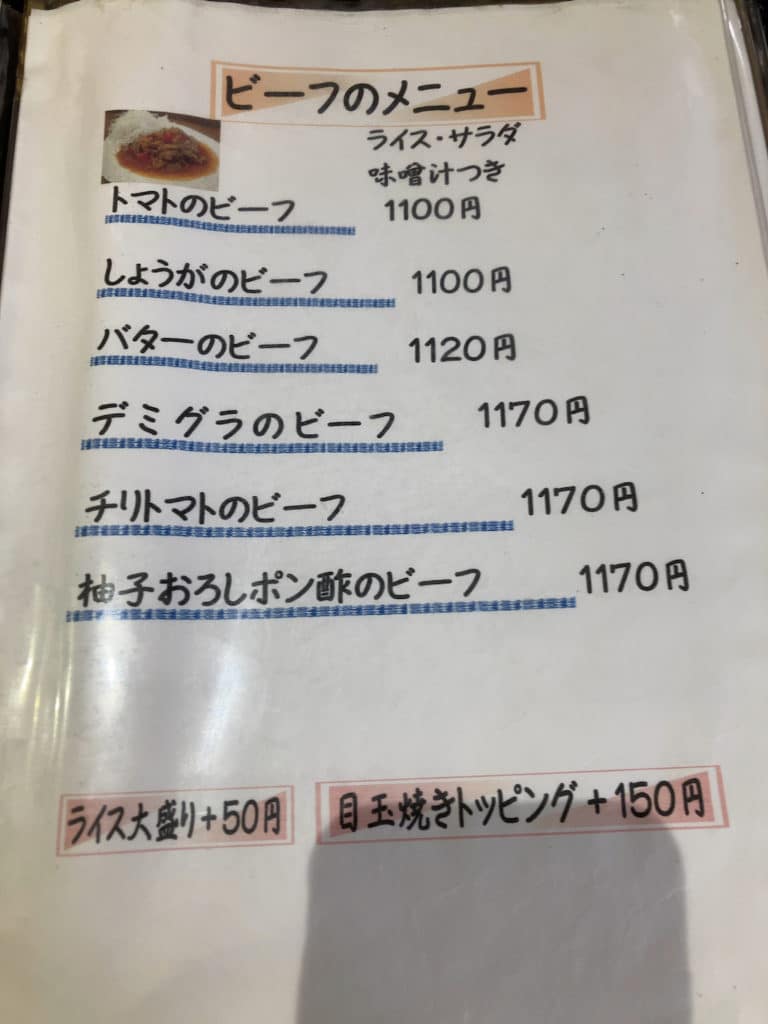 ビーフのメニュー
ライス・サラダ
味噌汁つき
トマトのビーフ 1100円
しょうがのビーフ 1100円
バターのビーフ 1120円
デミグラのビーフ 1170円
チリトマトのビーフ 1170円
柚子おろしポン酢のビーフ 1170円
ライス大盛り+50円 目玉焼きトッピング+150円